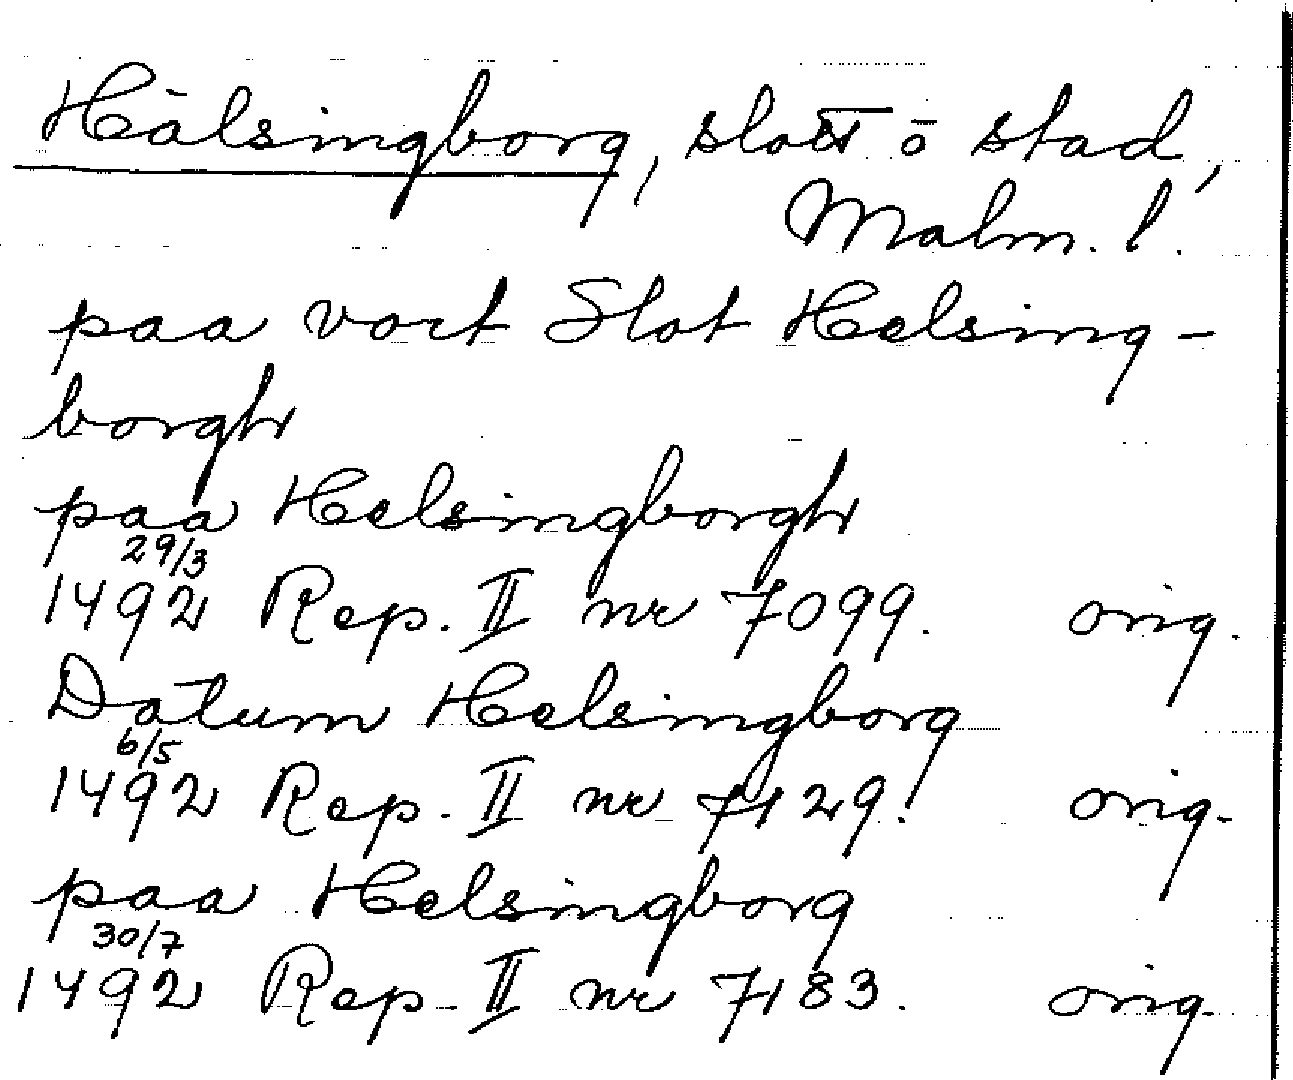 Hälsingborg, slott o stad,
Malm. l.
paa vort Slot Helsing-
borgh
paa Helsingborgh
29/3
1492 Rep. II nr 7099. orig.
Datum Helsingborg
6/5
1492 Rep. II nr 7129. orig.
paa Helsingborg
30/7
1492 Rep. II nr 7183. orig.